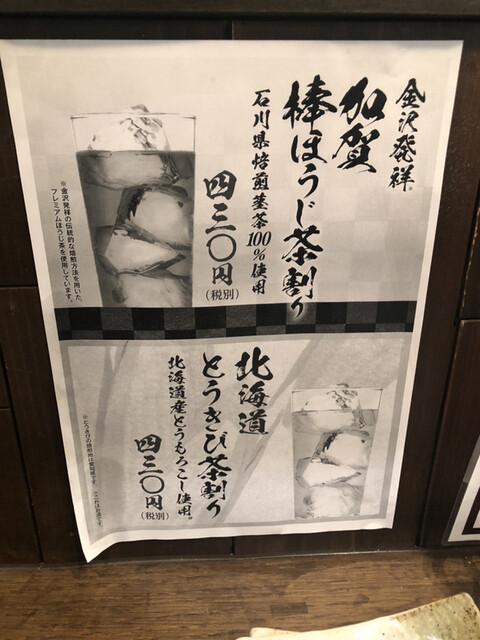 金沢発祥。
加賀
棒ほうじ茶割り
石川県焙煎茎茶100%使用
四三〇円
(税別)
※金沢発祥の伝統的な焙煎方法を用いた、
プレミアムほうじ茶を使用しています。
北海道
とうきび茶割り
北海道産とうもろこし使用。
四三〇円
(税別)